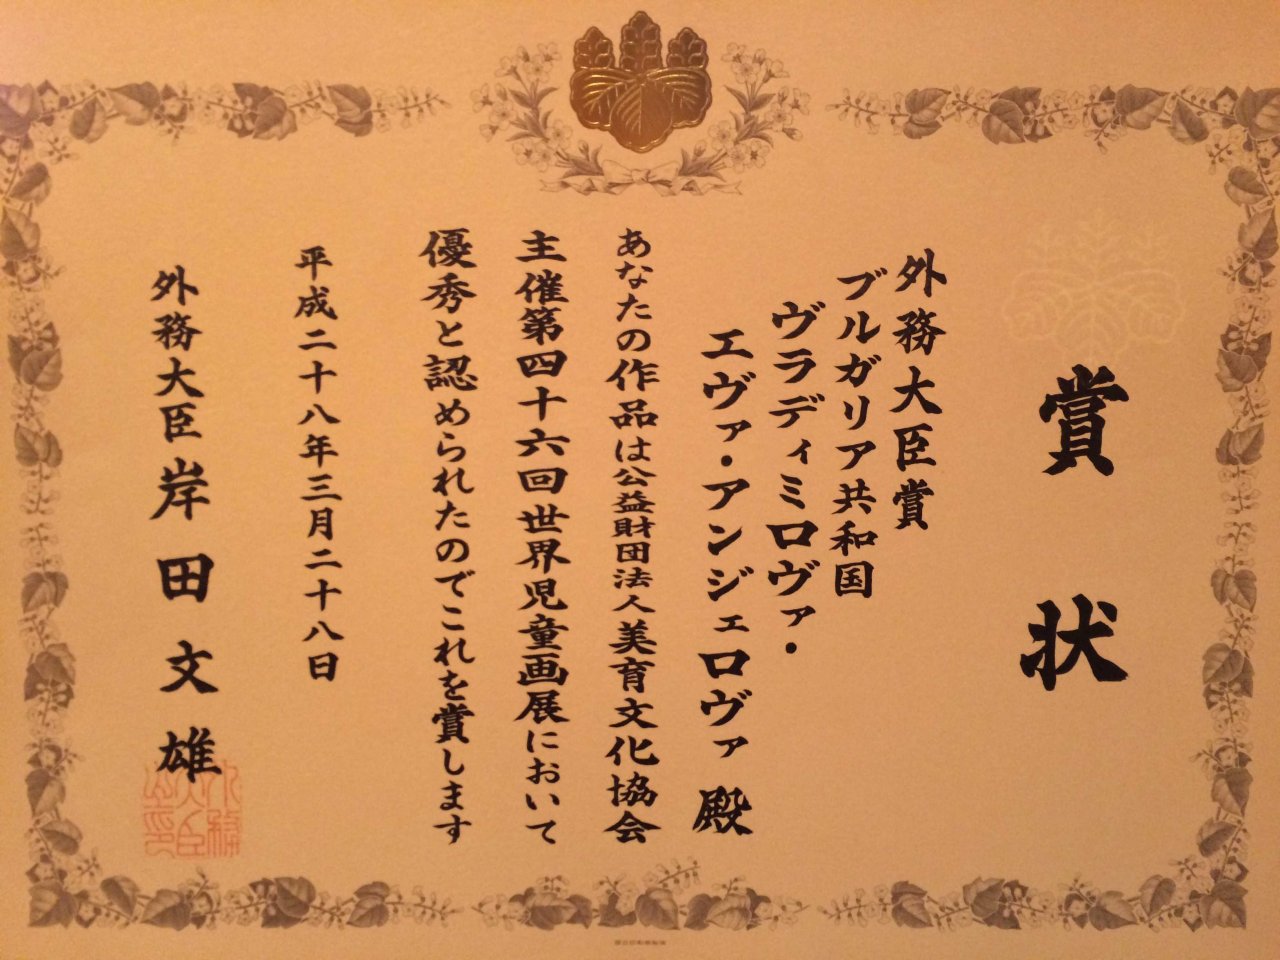 賞状
外務大臣賞
ブルガリア共和国
ヴラディミロヴァ・
エヴァ・アンジェロヴァ 殿
あなたの作品は公益財団法人美育文化協会
主催第四十六回世界児童画展において
優秀と認められたのでこれを賞します
平成二十八年三月二十八日
外務大臣 岸田文雄
外務大臣之印